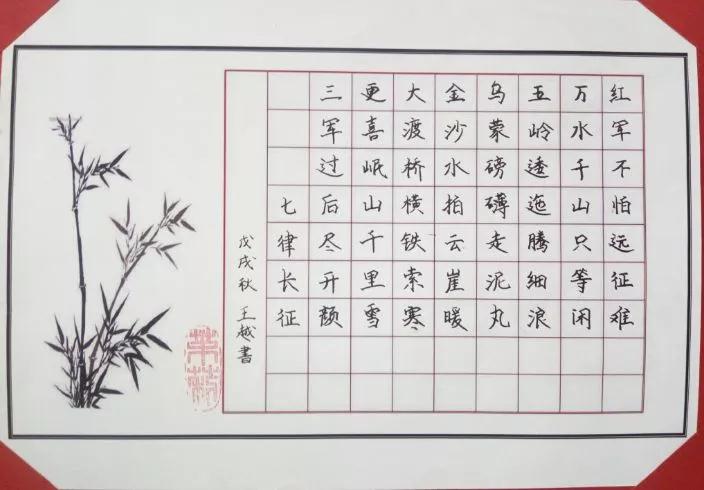 紅军不怕远征难
万水千山只等闲
五岭逶迤腾细浪
乌蒙磅礴走泥丸
金沙水拍云崖暖
大渡桥横铁索寒
更喜岷山千里雪
三军过后尽开颜
七律长征
戊戌秋 王越書